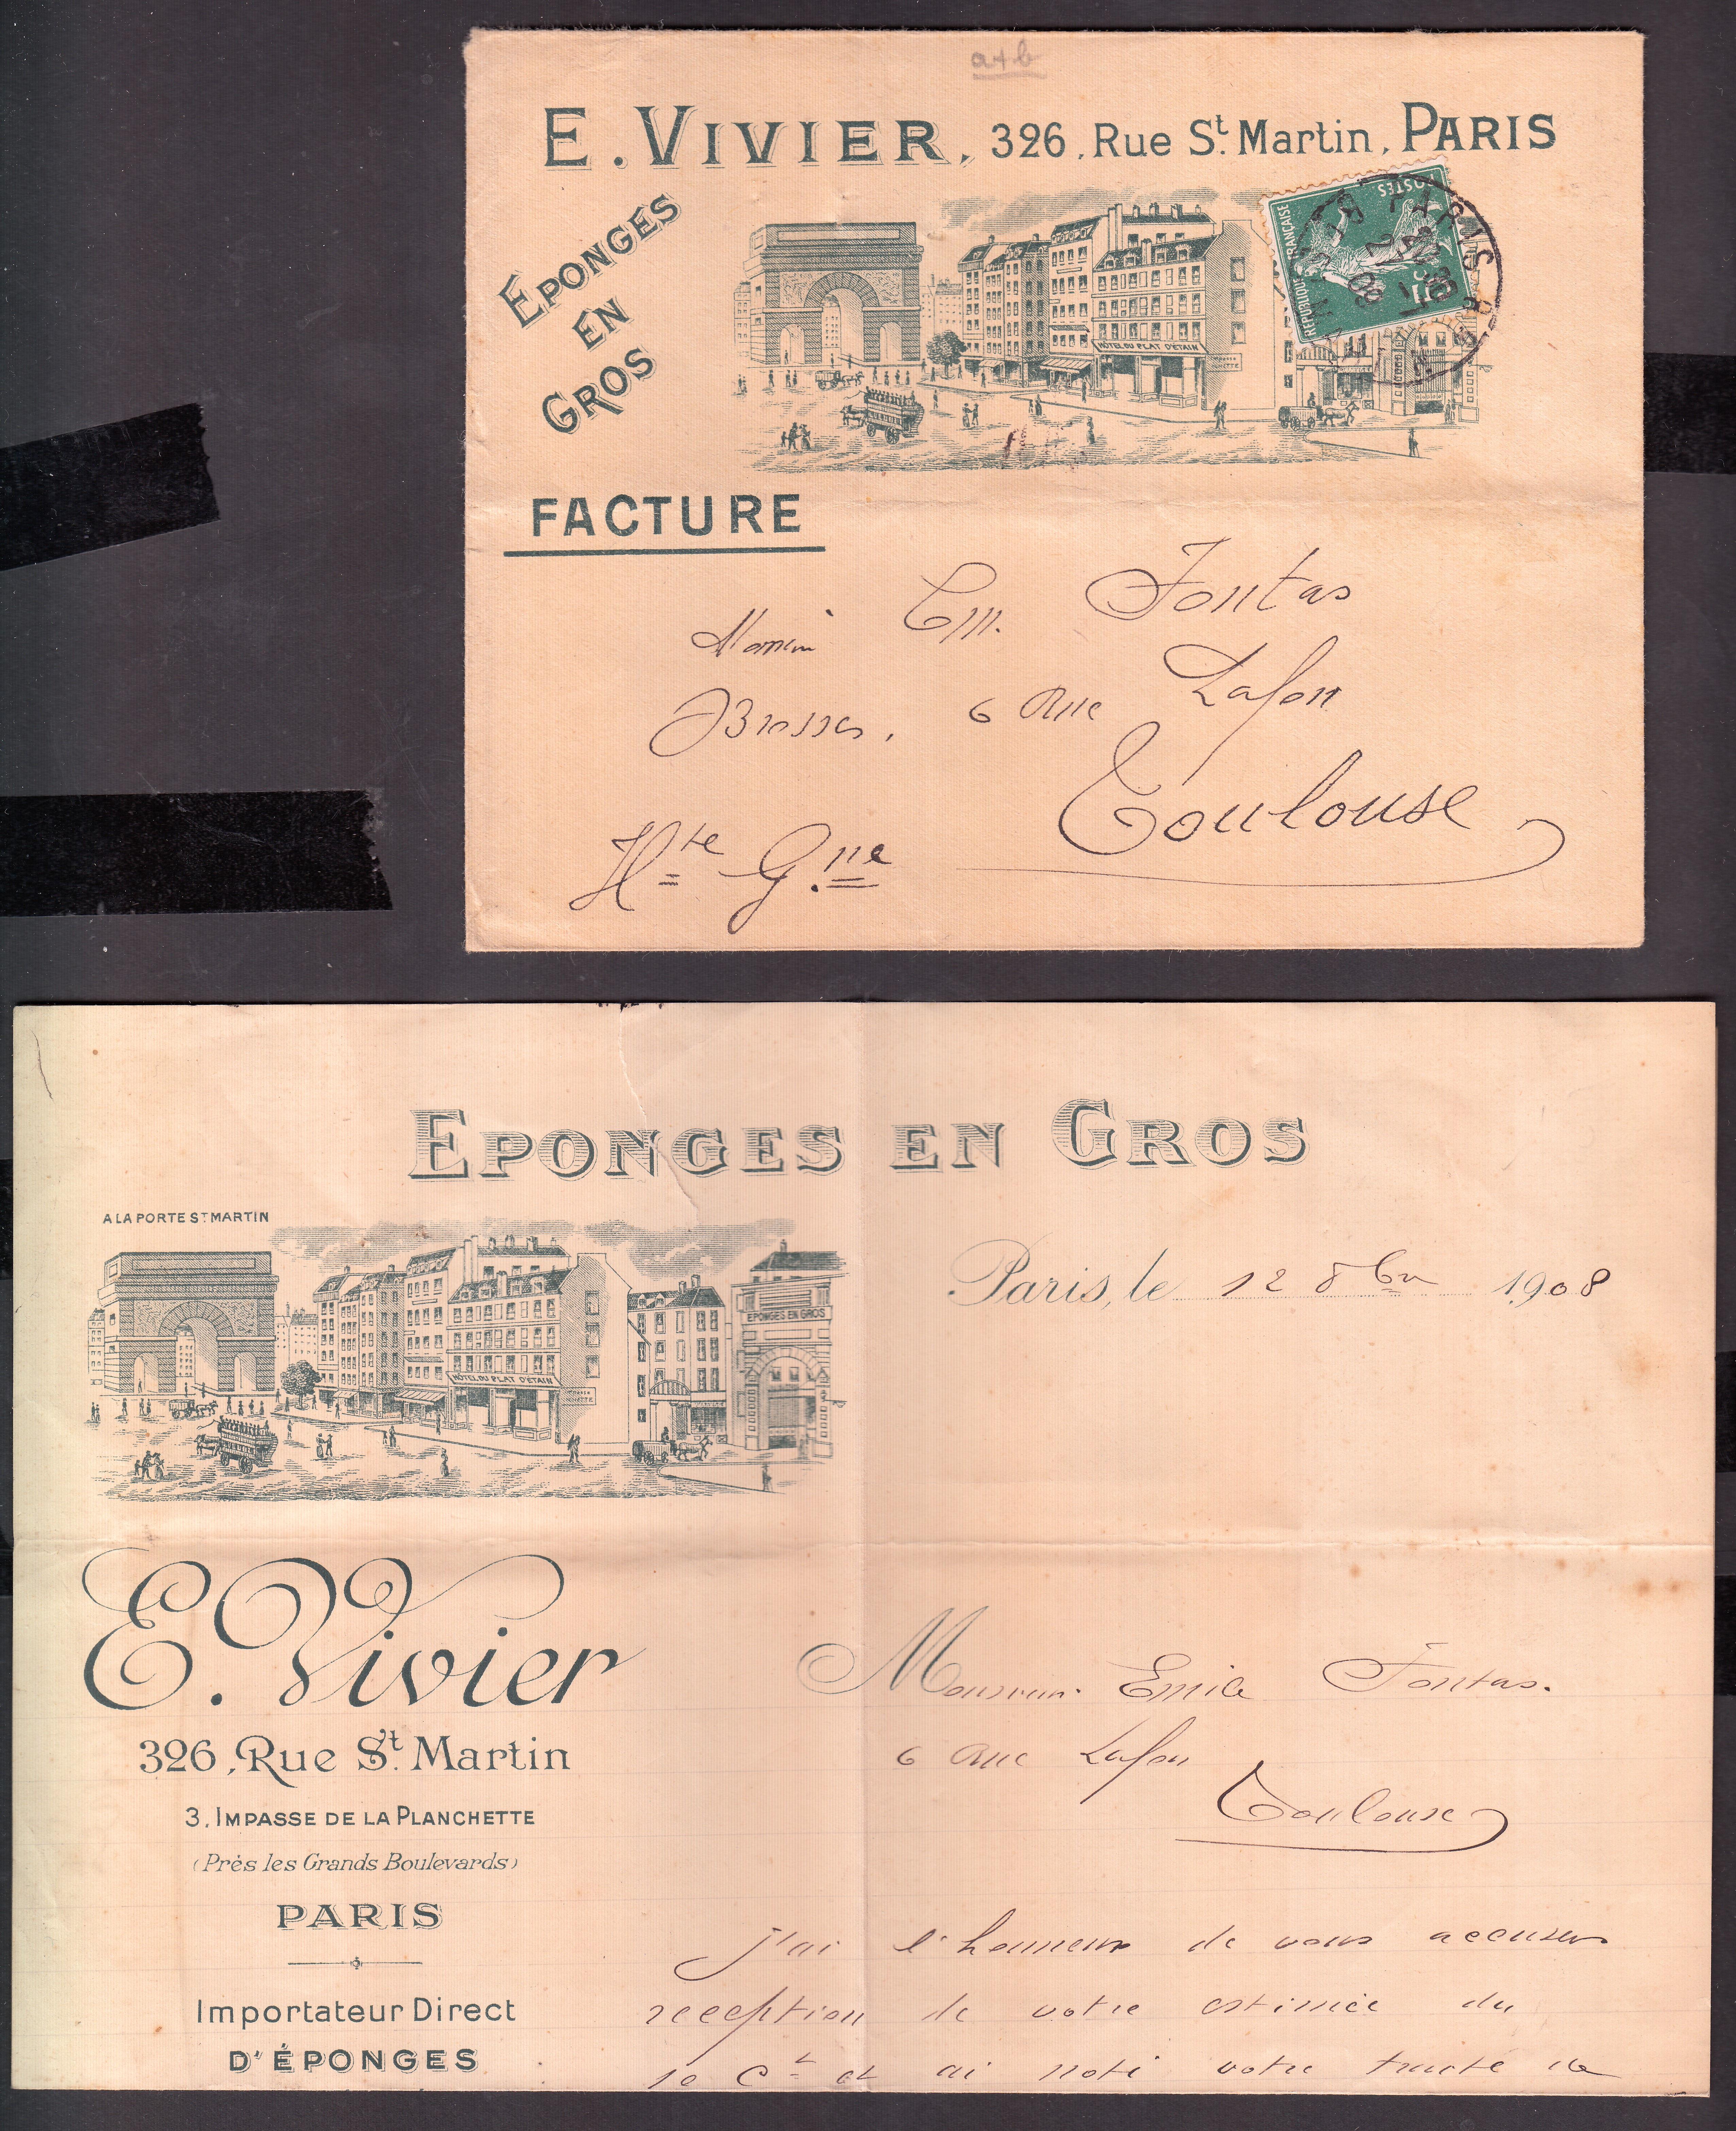 a+b
E. VIVIER, 326, Rue St. Martin, PARIS
ÉPONGES
EN
GROS
HÔTEL DU PLAT D'ÉTAIN
RÉPUBLIQUE FRANÇAISE
POSTES
PARIS
08
FACTURE
Monsieur Em. Fontas
Brosses, 6 Rue Lafon
Toulouse
Hte Gnne
EPONGES EN GROS
A LA PORTE ST MARTIN
EPONGES EN GROS
HÔTEL DU PLAT D'ÉTAIN
Paris, le 12 8bre 1908
E. Vivier
326, Rue St. Martin
3, IMPASSE DE LA PLANCHETTE
(Près les Grands Boulevards)
PARIS
Importateur Direct
D'ÉPONGES
Monsieur Emile Fontas.
6 Rue Lafon
Toulouse
J'ai l'honneur de vous accuser
reception de votre estimée du
10 Ct et ai noté votre traité de